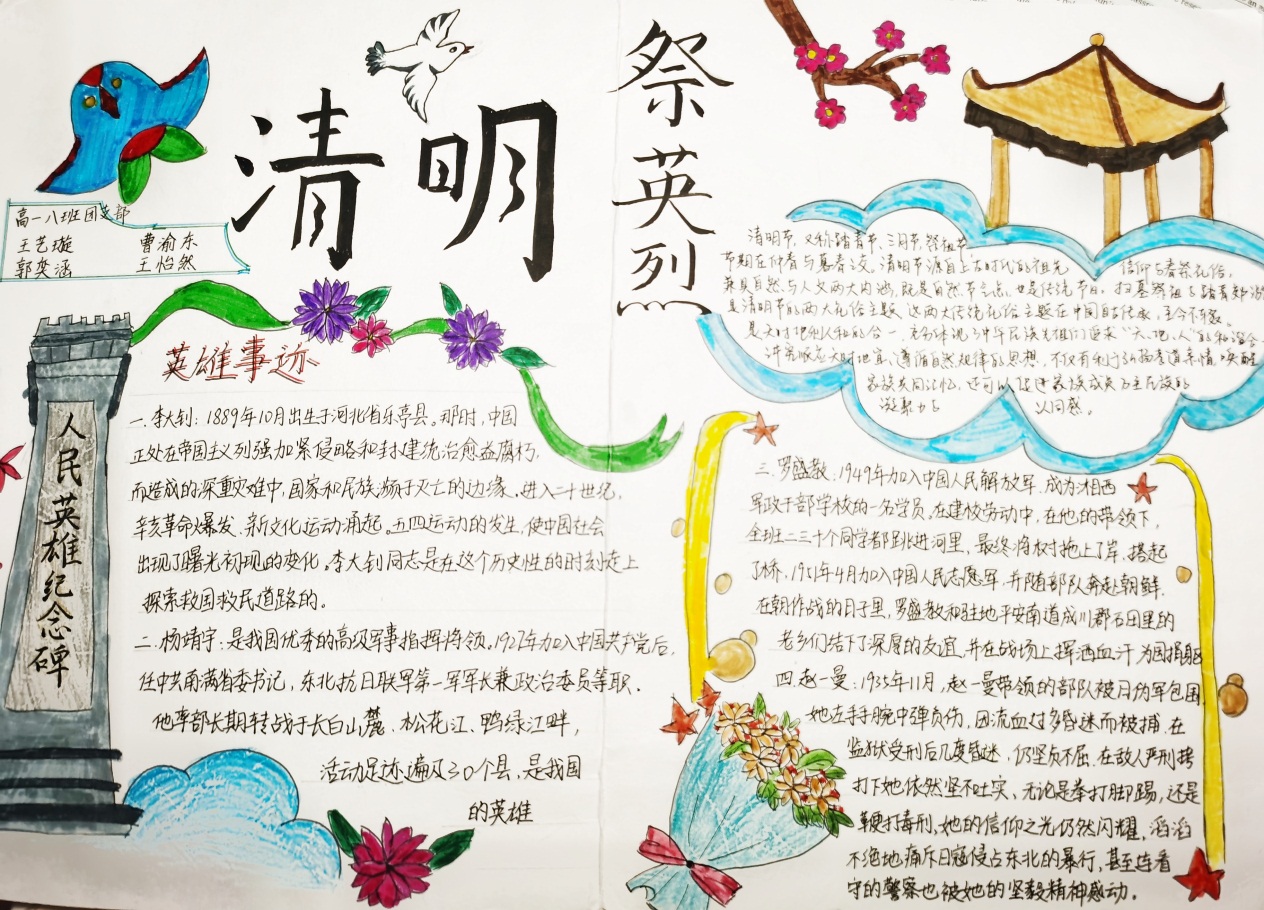 清明
祭英列
高一八班团支部
王艺璇 曹渝东
郭奕涵 王怡然
人民英雄纪念碑
英雄事迹
一.李大钊:1889年10月出生于河北省乐亭县。那时,中国
正处在帝国主义列强加紧侵略和封建统治愈益腐朽,
而造成的深重灾难中,国家和民族濒于灭亡的边缘.进入二十世纪,
辛亥革命爆发、新文化运动涌起。五四运动的发生,使中国社会
出现了曙光初现的变化。李大钊同志是在这个历史性的时刻走上
探索救国救民道路的。
二.杨靖宇:是我国优秀的高级军事指挥将领。1927年加入中国共产党后,
任中共南满省委书记,东北抗日联军第一军军长兼政治委员等职.
他率部长期转战于长白山麓、松花江、鸭绿江畔,
活动足迹遍及30个县,是我国
的英雄
清明节,又称踏青节、三月节、祭祖节
节期在仲春与暮春之交。清明节源自上古时代的祖先 信仰与春祭礼俗,
兼具自然与人文两大内涵,既是自然节气点,也是传统节日,扫墓祭祖与踏青郊游
是清明节的两大礼俗主题 这两大传统礼俗主题在中国自古传承,至今不辍。
是天时地利人和的合一 充分体现了中华民族先祖们追求“天、地、人”的和谐合一
讲究顺应天时地宜、遵循自然规律的思想. 不仅有利于弘扬孝道亲情、唤醒
家族共同记忆,还可以促进家族成员乃至民族的
凝聚力与 认同感。
三.罗盛教:1949年加入中国人民解放军.成为湘西
军政干部学校的一名学员。在建校劳动中,在他的带领下,
全班二三十个同学都跳进河里,最终将树拖上了岸,搭起
了桥,1951年4月加入中国人民志愿军,并随部队奔赴朝鲜.
在朝作战的日子里,罗盛教和驻地平安南道成川郡石田里的
老乡们结下了深厚的友谊,并在战场上挥洒血汗为国捐躯
四.赵一曼:1935年11月,赵一曼带领的部队被日伪军包围,
她左手手腕中弹负伤,因流血过多昏迷而被捕,在
监狱受刑后几度昏迷,仍坚贞不屈.在敌人严刑拷
打下她依然坚不吐实、无论是拳打脚踢,还是
鞭打毒刑,她的信仰之光仍然闪耀,滔滔
不绝地痛斥日寇侵占东北的暴行,甚至连看
守的警察也被她的坚毅精神感动.